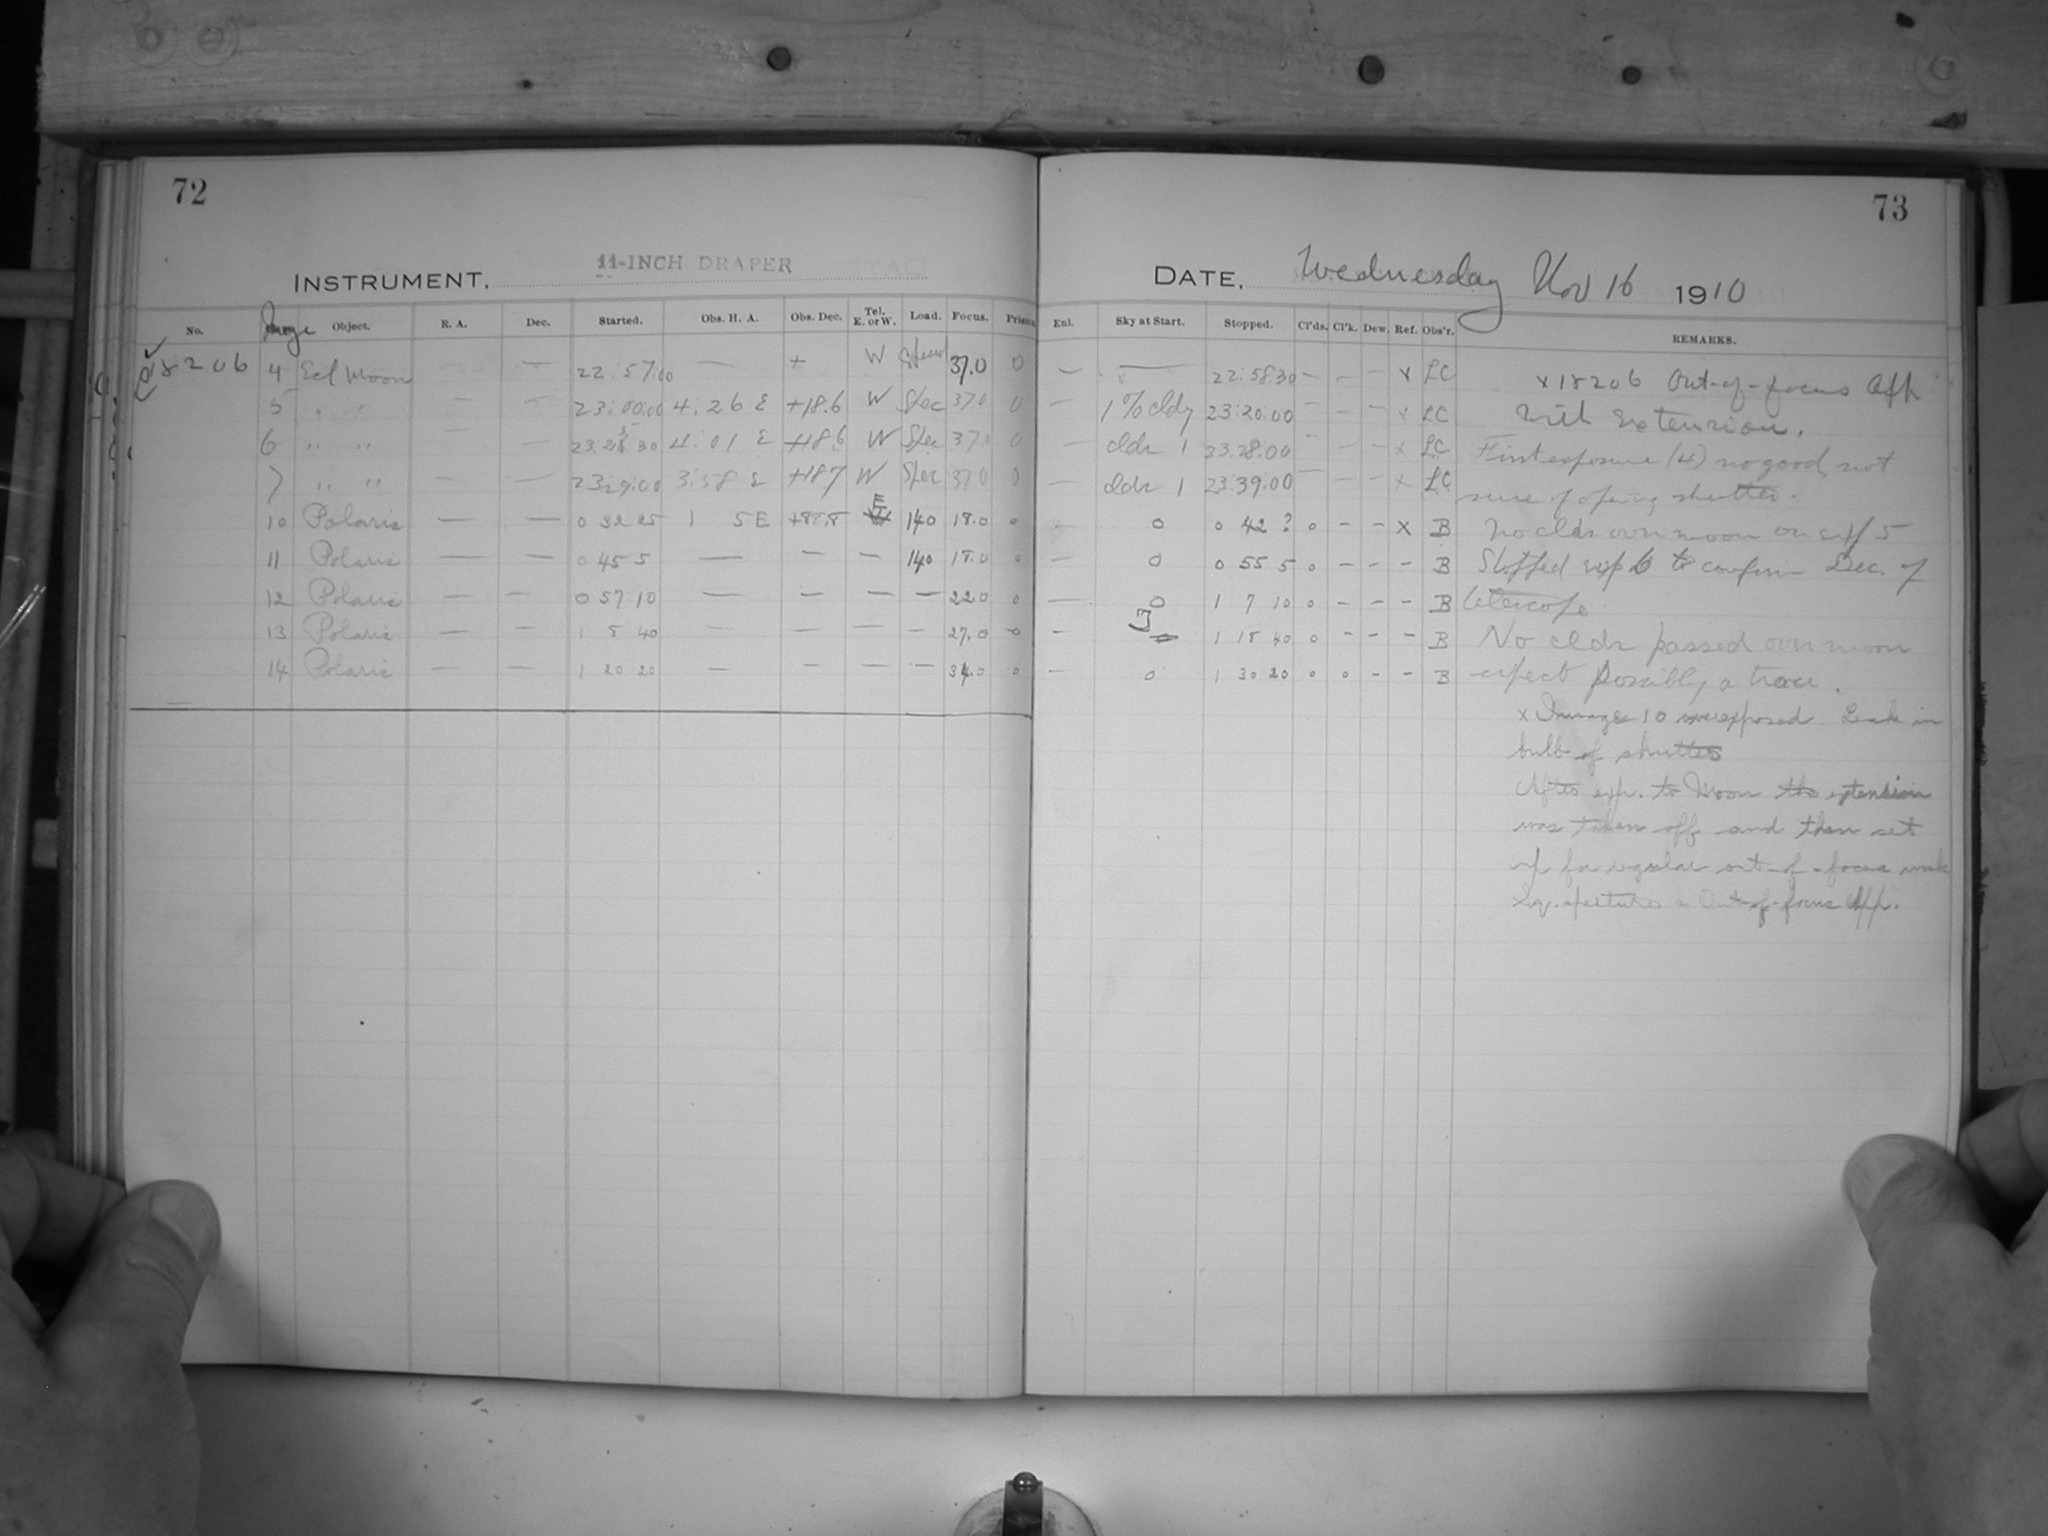 72
INSTRUMENT. 11-INCH DRAPER
No. Image Object. R. A. Dec. Started. Obs. H. A. Obs. Dec. Tel. E. or W. Load. Focus. Prism
18206 4 Ecl Moon — — 22:57:00 — + W 37.0 0
5 " " — — 23:00:00 4:26 E +18.6 W Spec 37.0 0
6 " " — — 4:01 E +18.6 W Spec 37.0 0
7 " " — — 23:29:00 3:58 E +18.7 W Spec 37.0 0
10 Polaris — — 0 32 25 1 5 E E 140 18.0 0
11 Polaris — — 0 45 5 — — — 140 18.0 0
12 Polaris — — 0 57 10 — — — — 22.0 0
13 Polaris — — 1 8 40 — — — — 27.0 0
14 Polaris — — 1 20 20 — — — — 34.0 0
73
DATE. Wednesday Nov 16 1910
Enl. Sky at Start. Stopped. Cl'ds. Cl'k. Dew. Ref. Obs'r. REMARKS.
— — 22:58:30 — — — x LC
— 1% cldy 23:20:00 — — — x LC
— clds 1 23:28:00 — — — x LC
— clds 1 23:39:00 — — — x LC
— 0 0 42 ? 0 — — x B
— 0 0 55 5 0 — — — B
— 0 1 7 10 0 — — — B
— 1 18 40 0 — — — B
— 0 1 30 20 0 0 — — B
x 18206 Out-of-focus App
with extension.
First exposure (4) no good, not
sure of opening shutter.
No clds over moon on exp 5
Stopped exp 6 to confirm Dec. of
telescope.
No clds passed over moon
except possibly a trace.
x Image 10 overexposed. Leak in
bulb of shutter
After exp. to Moon the extension
was taken off and then set
up for regular out-of-focus work
Sq. aperture Out-of-focus App.